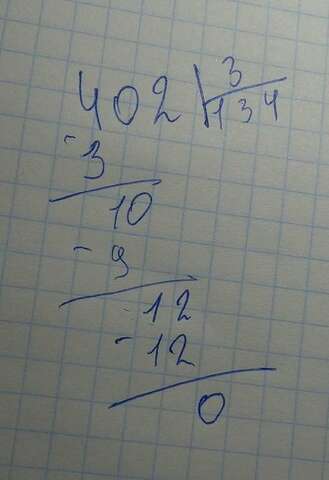 402 3
134
- 3
10
- 9
12
- 12
0